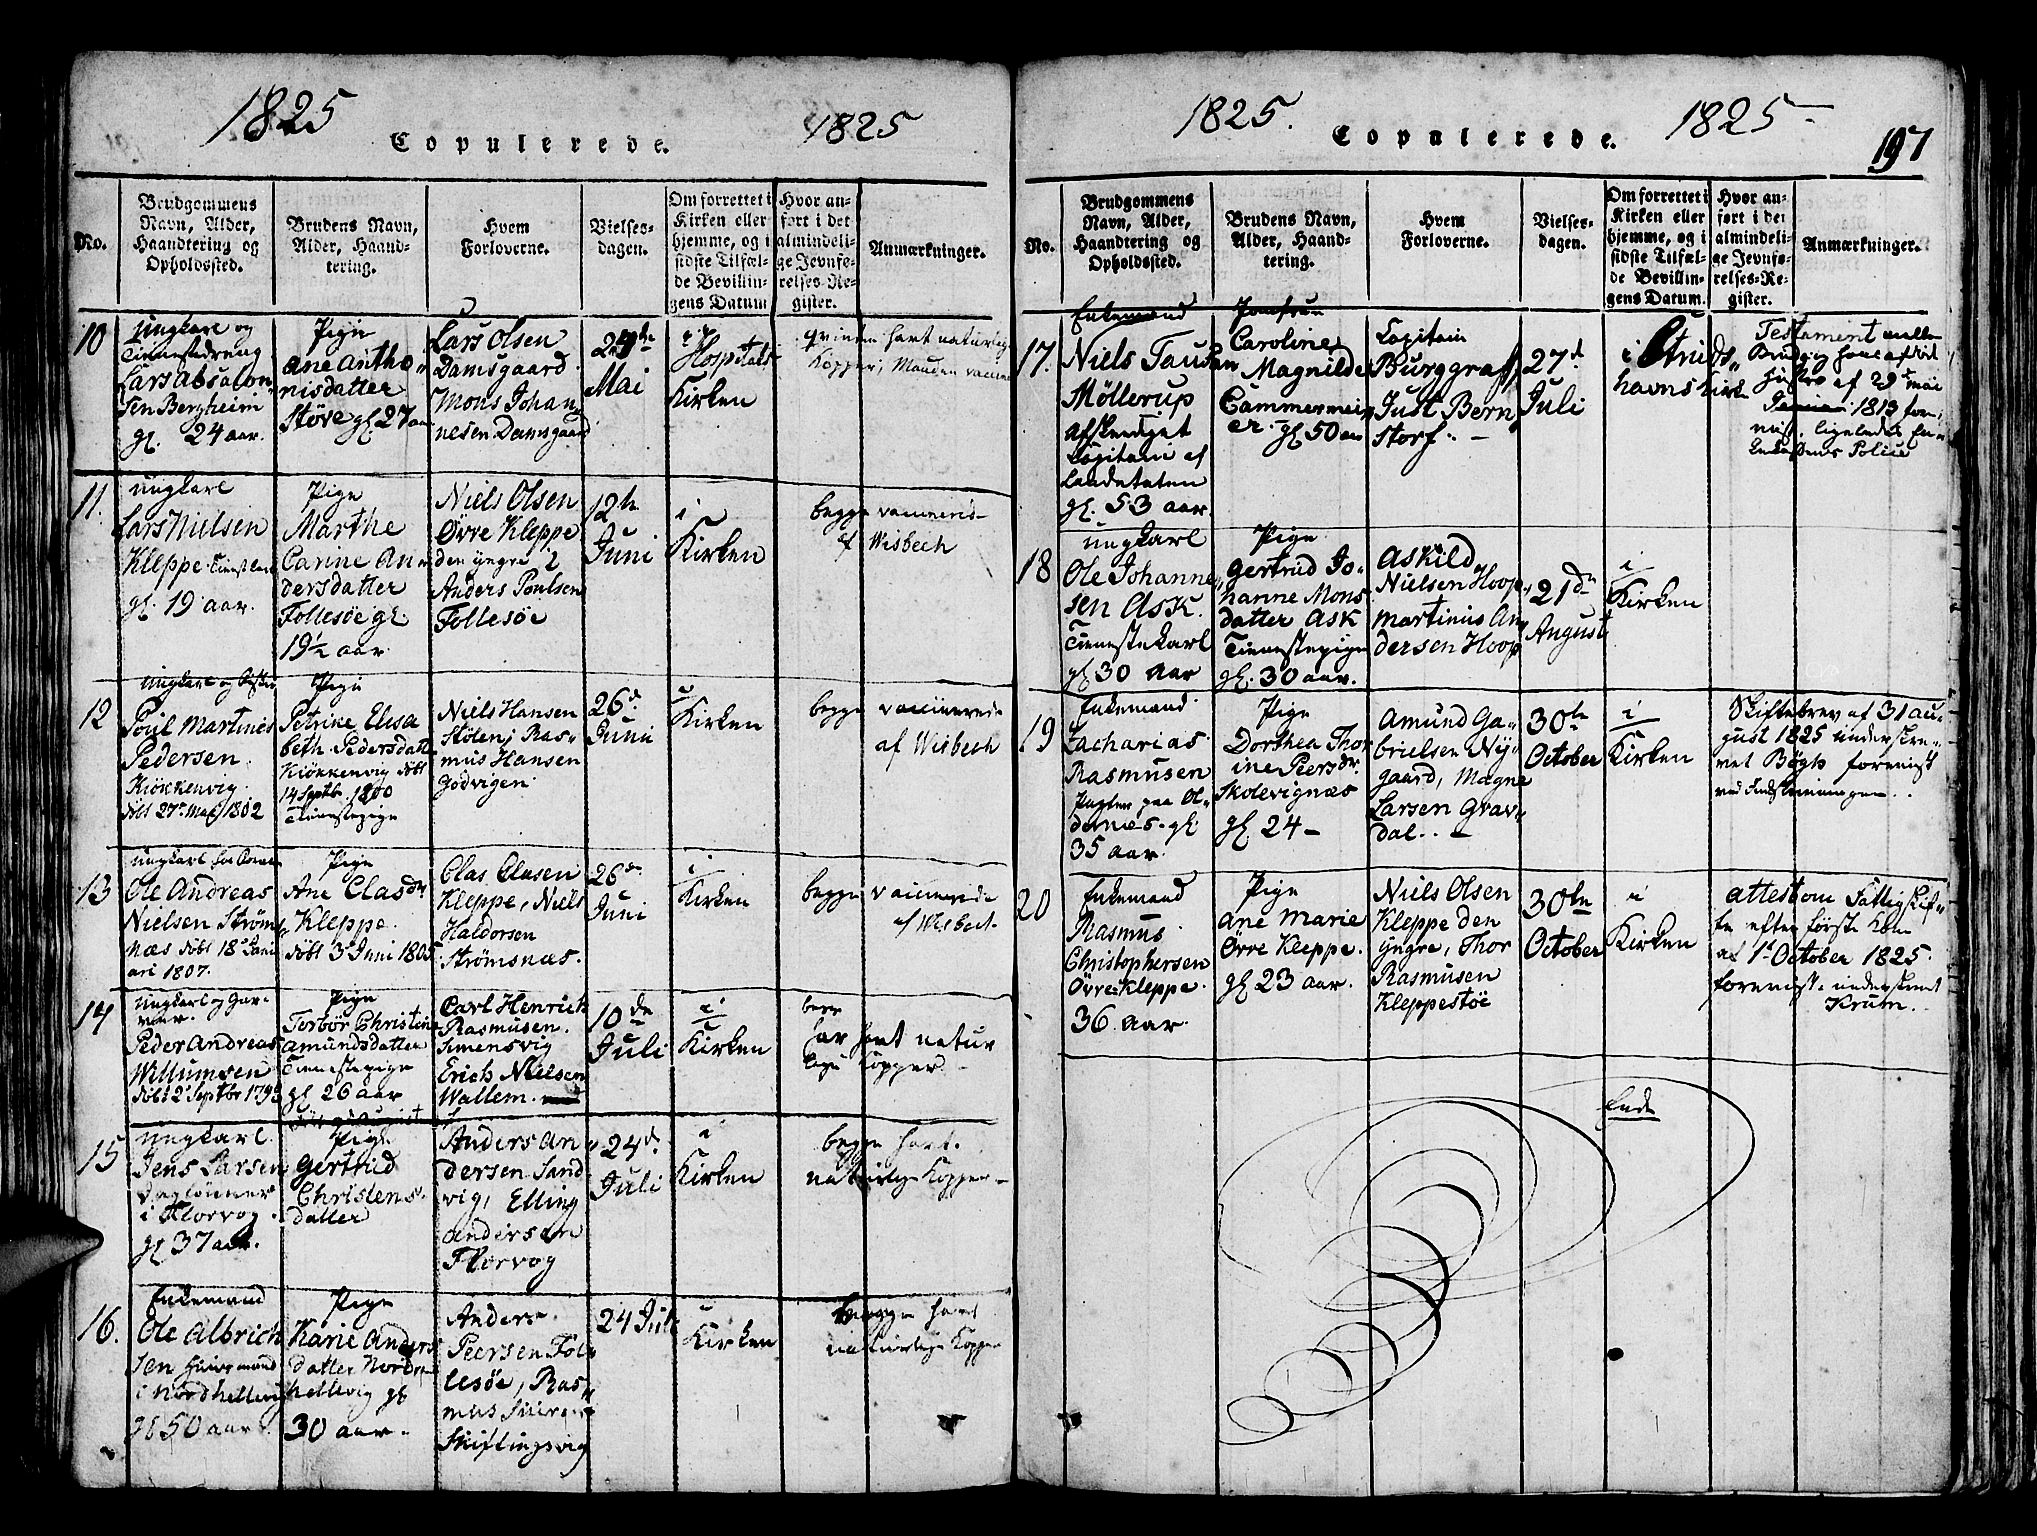 1825
Copulerede.
1825
No.
Brudgommens
Navn, Alder,
Haandtering og
Opholdssted.
Brudens Navn,
Alder, Haand-
tering.
Hvem
Forloverne.
Vielses-
dagen.
Om forrettet i
Kirken eller
hjemme, og i
sidste Tilfæl-
de Bevillin-
gens Datum
Hvor an-
ført i det
almindeli-
ge Jevnfø-
relses-Re-
gister.
Anmærkninger.
10
Ungkarl og
Tienestedreng
Lars Absalon-
sen Bergheim
gl. 24 aar.
Pige
Ane Antho-
nisdatter
Støve gl. 27 aar
Lars Olsen
Damsgaard
Mons Johan-
nesen Damsgaard
24de
Mai
i
Hospitals
Kirken
qvinden havt naturlige
Kopper, Manden vaccine
11.
Ungkarl
Lars Nielsen
Kleppe
gl. 19 aar.
Pige
Marthe
Carine An-
dersdatter
Follesøe gl.
19½ aar
Niels Olsen
Øvre Kleppe
den yngre
Anders Poulsen
Follesøe
12h
Juni
i
Kirken
begge vaccinered-
af Wisbech
12
Ungkarl og
Poul Martines
Pedersen
Kiøkkenvig
døbt 27de Mai 1802
Pige
Petrike Elisa
beth Pedersdatt
Kiøkkenvig døbt
14 Septb. 1800
Tienestepige
Niels Hansen
Stølen, Ras-
mus Hansen
Godvigen
26d
Juni
i
Kirken
begge vaccinerede
af Wisbech
13
Ungkarl
Ole Andreas
Nielsen Strøms
næs døbt 18de Janu
ari 1807.
Pige
Ane Clasdr
Kleppe
døbt 3de Juni 1805
Clas Clasen
Kleppe, Niels
Haldorsen
Strømsnæs.
26de
Juni
i
Kirken
begge vaccinerede
af Wisbech.
14
Ungkarl og Gar-
ver.
Peder Andreas
Willumsen
døbt 2d Septbr 179
Pige
Torbør Christine
Amundsdatter
Tienestepige
gl. 26 aar
Carl Henrich
Rasmusen
Simensvig
Erich Nielsen
Wallem.
10de
Juli
i
Kirken
har havt natur
lige Kopper.
15
Ungkarl.
Jens Larsen
Daglønner
i Florvog.
gl 37 aar.
Pige
Gertrud
Christens-
datter
Anders An
dersen Sand
vig, Elling
Andersen
Florvog
24d.
Juli
i
Kirken
begge havt
naturlige Kopper-
16.
Enkemand
Ole Albrich
sen Huusmand
i Nordhellevig
gl 50 aar.
Pige
Karie Anders
datter Nordre
hellevig gl
30 aar.
Anders
Peersen Fol-
lesøe, Ras-
mus
Skiftingsvig
24 Juli
i
Kirken
begge havt
naturlige Kopper
1825.
Copulerede.
1825
197
No.
Brudgommens
Navn, Alder,
Haandtering og
Opholdssted.
Brudens Navn,
Alder, Haand-
tering.
Hvem
Forloverne.
Vielses-
dagen.
Om forrettet i
Kirken eller
hjemme, og i
sidste Tilfæl-
de Bevillin-
gens Datum.
Hvor an-
ført i det
almindeli-
ge Jevnfø-
relses-Re-
gister.
Anmærkninger.
17.
Enkemand
Niels Tausan
Möllerup
Afskediget
Capitain af
Landetaten
gl. 53 aar.
Jomfrue
Caroline
Magnilde
Cammermei
er. gl 50 aar
Capitain
Burggraff,
Just Bern
storf. -
27d
Juli
i Struds-
havns Kirke
Testament mellem
af 29de Mai
1813 fore-
vist. ligeledes En-
kekassens Police
18
Ungkarl
Ole Johanne-
sen Ask.
Tienestekarl
gl 30 aar
Pige
Gertrud Jo-
hanne Mons
datter Ask
Tienestepige
gl. 30 aar.
Askild
Nielsen Hoop,
Martinus An
dersen Hoop
21de
August
i
Kirken
19
Enkemand
Zacharias
Rasmusen
Pagter paa Ol-
dernes. gl.
35 aar.
Pige
Dorthea Thor
ine Peersdr.
Skolevignæs
gl 24-
Amund Ga-
brielsen Ny-
gaard, Magne
Larsen Grav-
dal. -
30te
October
i
Kirken
Skiftebrev af 31 au-
gust 1825 underskre-
vet Bøgh forevist
20
Enkemand
Rasmus
Christophersen
Øvre Kleppe.
36 aar
Pige
Ane Marie
Øvre Kleppe.
gl 23 aar.
Niels Olsen
Kleppe den
yngre, Thor
Rasmusen
Kleppestøe
30te
October
i
Kirken
attest om Fattigskif-
te efter første Kone
af 1d October 1825.
forevist. underskrevet
Krum.
Ende